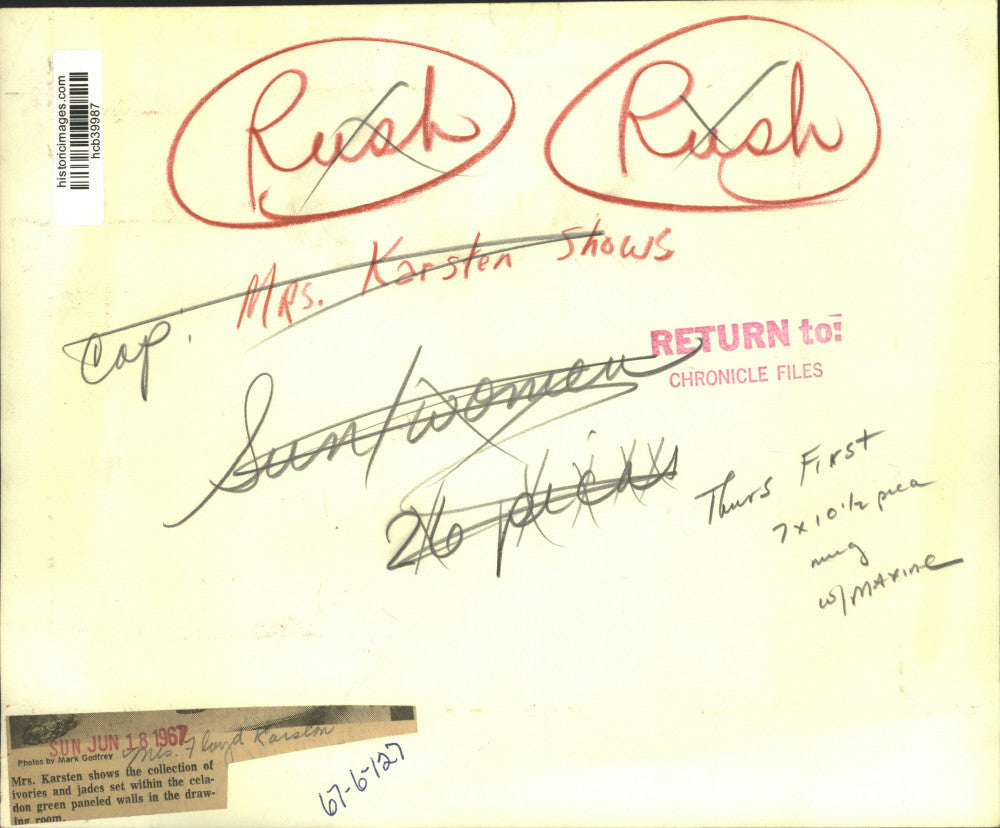 historicimages.com
hcb39987
Rush
Rush
Mrs. Karsten shows
Cap.
RETURN to:
CHRONICLE FILES
Sun/women
26 picas
Thurs First
7 x 10 1/2 pica
mug
w/MAXINE
SUN JUN 18 1967
Photos by Mark Godfrey
Mrs. Floyd Karsten
Mrs. Karsten shows the collection of
ivories and jades set within the cela-
don green paneled walls in the draw-
ing room.
67-6-127